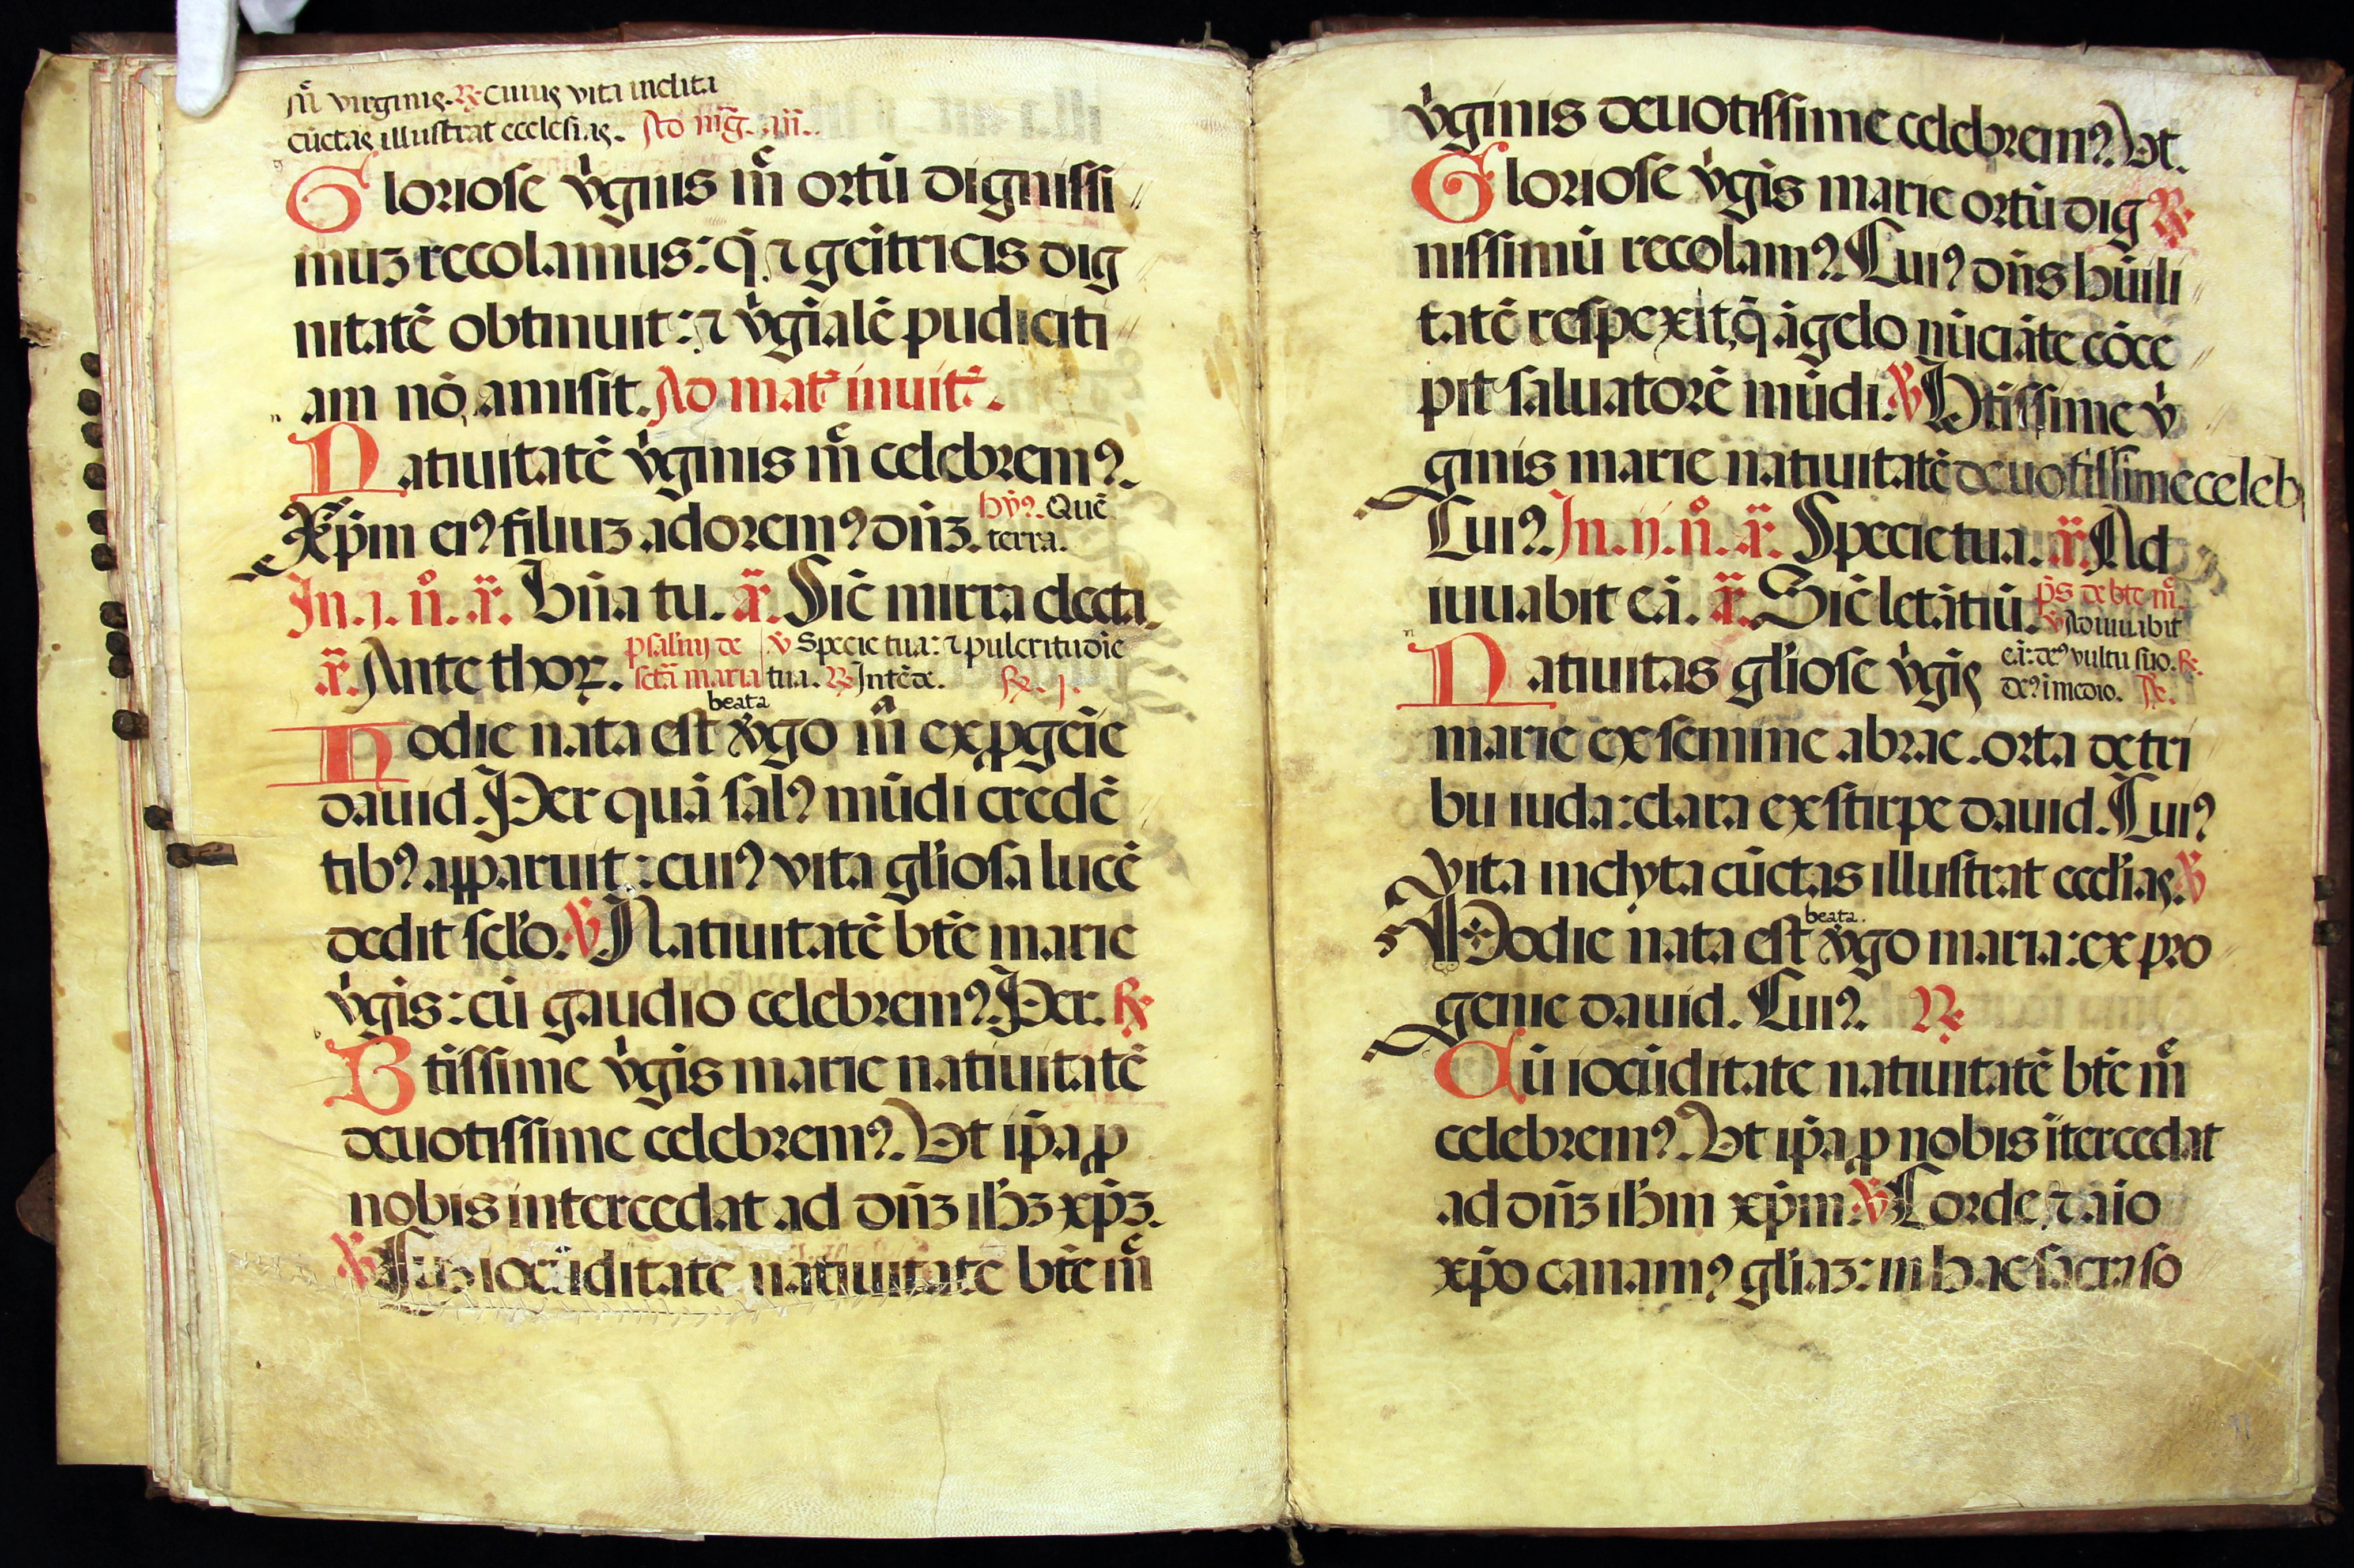 m̃ virginis. ℟ Cuius vita inclita
cūctas illustrat ecclesias. Ad m̃g. añ.
Gloriose v̓ginis m̃ ortū dignissi
muꝫ recolamus: q̄ ⁊ geītricis dig
nitatē obtinuit: ⁊ v̓gīalē pudiciti
am nō amisit. Ad mat̄ inuit̄.
Natiuitatē v̓ginis m̃ celebremꝰ.
Xp̄m eiꝰ filiuꝫ adoremꝰ dn̄ꝫ. hỹꝰ. Quē
terra.
In .j. n̊. a͂. Bn̄a tu. a͂. Sic̄ mirra electa.
a͂. Ante thoꝝ. psalmj de ℣ Specie tua: ⁊ pulcritudīe
sctā maria tua. ℟ Intēde. ℟. j.
beata
Hodie nata est v̓go m̃ ex ꝓgeīe
dauid. Per quā salꝰ mūdi credē
tibꝰ apparuit: cuiꝰ vita gl̓iosa lucē
dedit sc̄lo. ℣ Natiuitatē bt̄e marie
v̓gis: cū gaudio celebremꝰ. Per. ℟
Btissime v̓gis marie natiuitatē
deuotissime celebremꝰ. Vt ip̄a ꝓ
nobis intercedat ad dn̄ꝫ ih̄ꝫ xp̄ꝫ.
℣ Cuꝫ iocūditate natiuitatē bt̄e m̃
v̓ginis deuotissime celebremꝰ. Vt.
Gloriose v̓gis marie ortū dig ℟
nissimū recolamꝰ. Cuiꝰ dn̄s hūili
tatē respexit, q̄ āgelo nūciāte cōce
pit saluatorē mūdi. ℣ Btissime v̓
ginis marie natiuitatē deuotissime celeb
Cuiꝰ. In .ij. n̊. a͂. Specie tua. a͂. Ad
iuuabit eā. a͂. Sic̄ letātiū. p̄s de bt̄e m̃.
℣ Adiuuabit
Natiuitas gl̓iose v̓gis eā: deꝰ vultu suo. ℟.
deꝰ ī medio. ℟.
marie ex semine abrae. orta de tri
bu iuda: clara ex stirpe dauid. Cuiꝰ
vita inclyta cūctas illustrat eccl̓ias. ℣
beata.
Hodie nata est v̓go maria: ex pro
genie dauid. Cuiꝰ. ℟
Cū iocūditate natiuitatē bt̄e m̃
celebremꝰ. Vt ip̄a ꝓ nobis ītercedat
ad dn̄ꝫ ih̄m xp̄m. ℣ Corde, ⁊ aīo
xp̄o canamꝰ gl̓iaꝫ: in hac sacra so